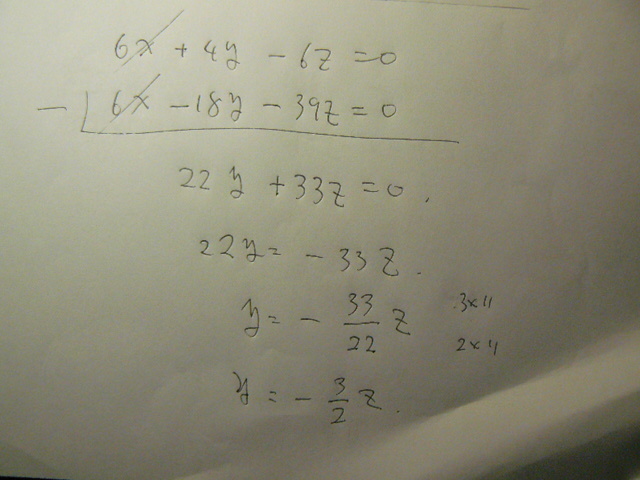 6x + 4y - 6z = 0
- 6x - 18y - 39z = 0
22y + 33z = 0.
22y = - 33z.
y = - 33/22 z 3×11
2×11
y = - 3/2 z.